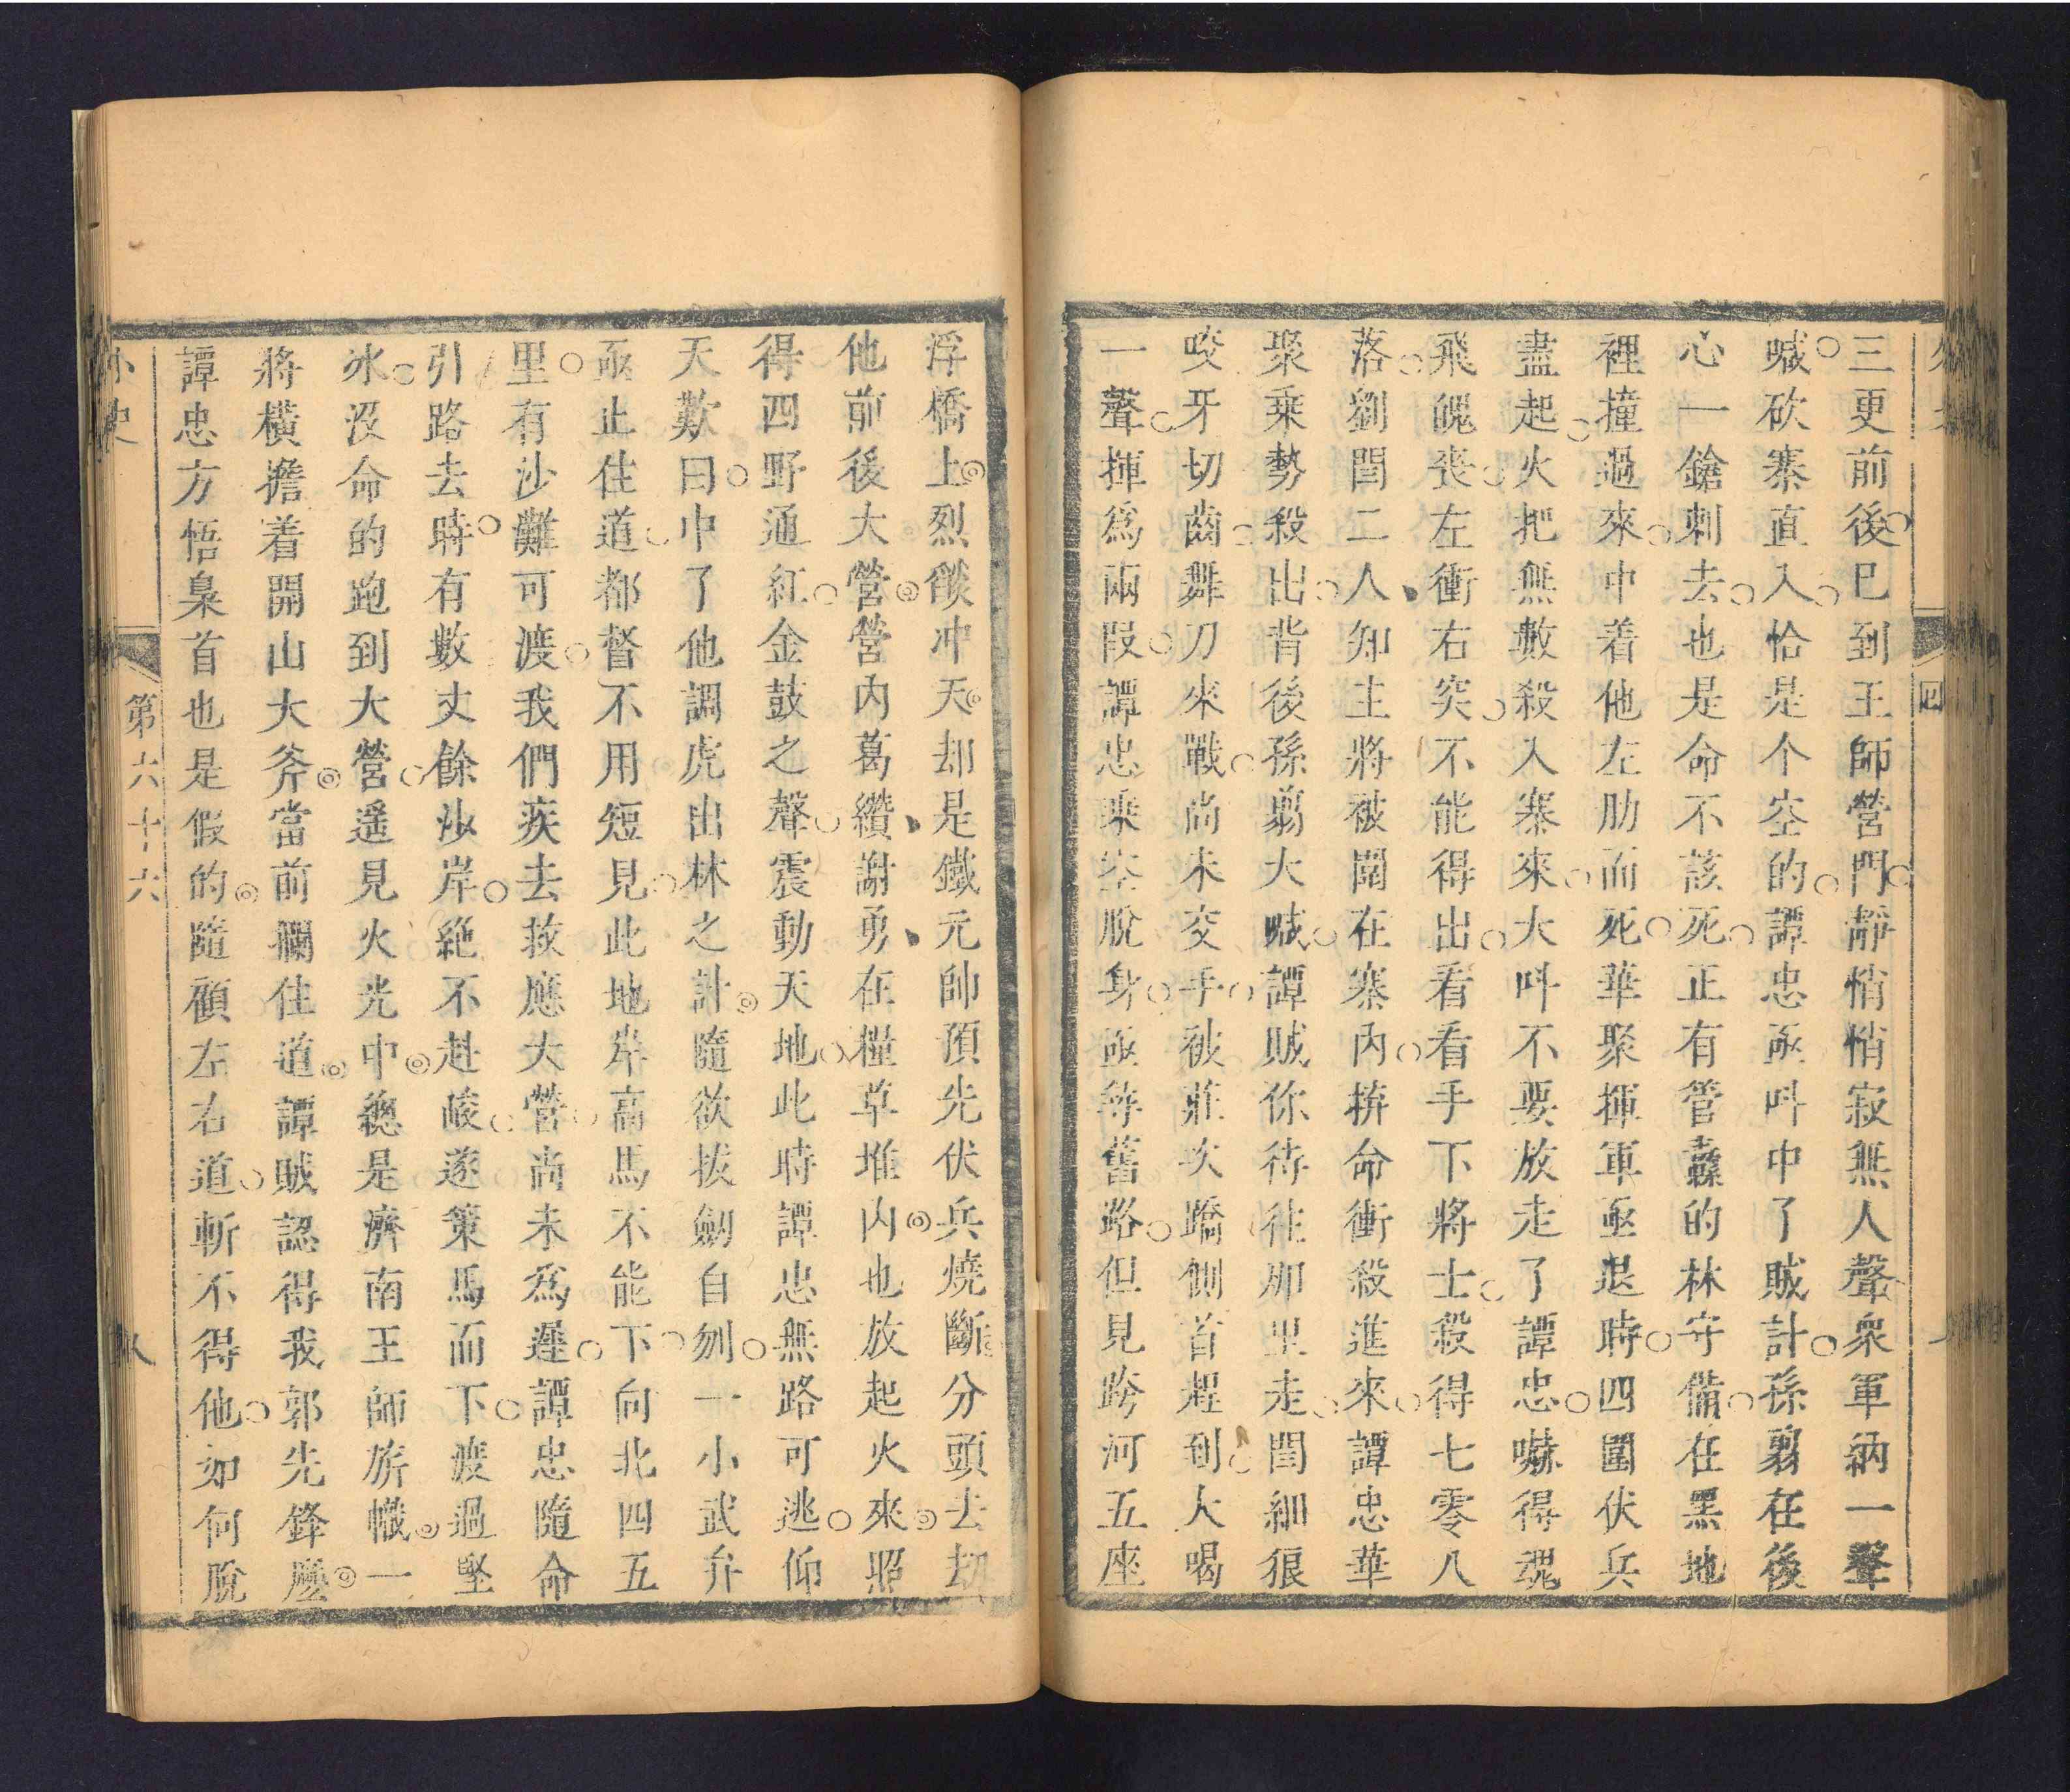 三更前後巳到王師營門靜悄悄寂無人聲衆軍納一聲
喊砍寨直入恰是个空的譚忠亟呌中了賊計孫翦在後
心一鎗刺去也是命不該死正有管纛的林守備在黑地
裡撞過來中着他左肋而死華聚揮軍亟退時四圍伏兵
盡起火把無數殺入寨來大呌不要放走了譚忠嚇得魂
飛魄喪左衝右突不能得出看看手下將士殺得七零八
落劉閏二人知主將被圍在寨內拚命衝殺進來譚忠華
聚乘勢殺出背後孫翦大喊譚賊你待往那里走閏細狠
咬牙切齒舞刀來戰尚未交手被莊次蹻側首趕到大喝
一聲揮爲兩段譚忠乘空脫身亟尋舊路但見跨河五座
浮橋上烈燄冲天却是鐵元帥預先伏兵燒斷分頭去刼
他前後大營營內葛纘謝勇在糧草堆內也放起火來照
得四野通紅金鼓之聲震動天地此時譚忠無路可逃仰
天歎曰中了他調虎出林之計隨欲拔劒自刎一小武弁
亟止住道都督不用短見此地岸高馬不能下向北四五
里有沙灘可渡我們疾去救應大營尚未爲遲譚忠隨命
引路去時有數丈餘沙岸絶不赴峻遂策馬而下渡過堅
冰沒命的跑到大營遥見火光中總是濟南王師旂幟一
將橫擔着開山大斧當前攔住道譚賊認得我郭先鋒麽
譚忠方悟梟首也是假的隨顧左右道斬不得他如何脫
外史
第六十六
四